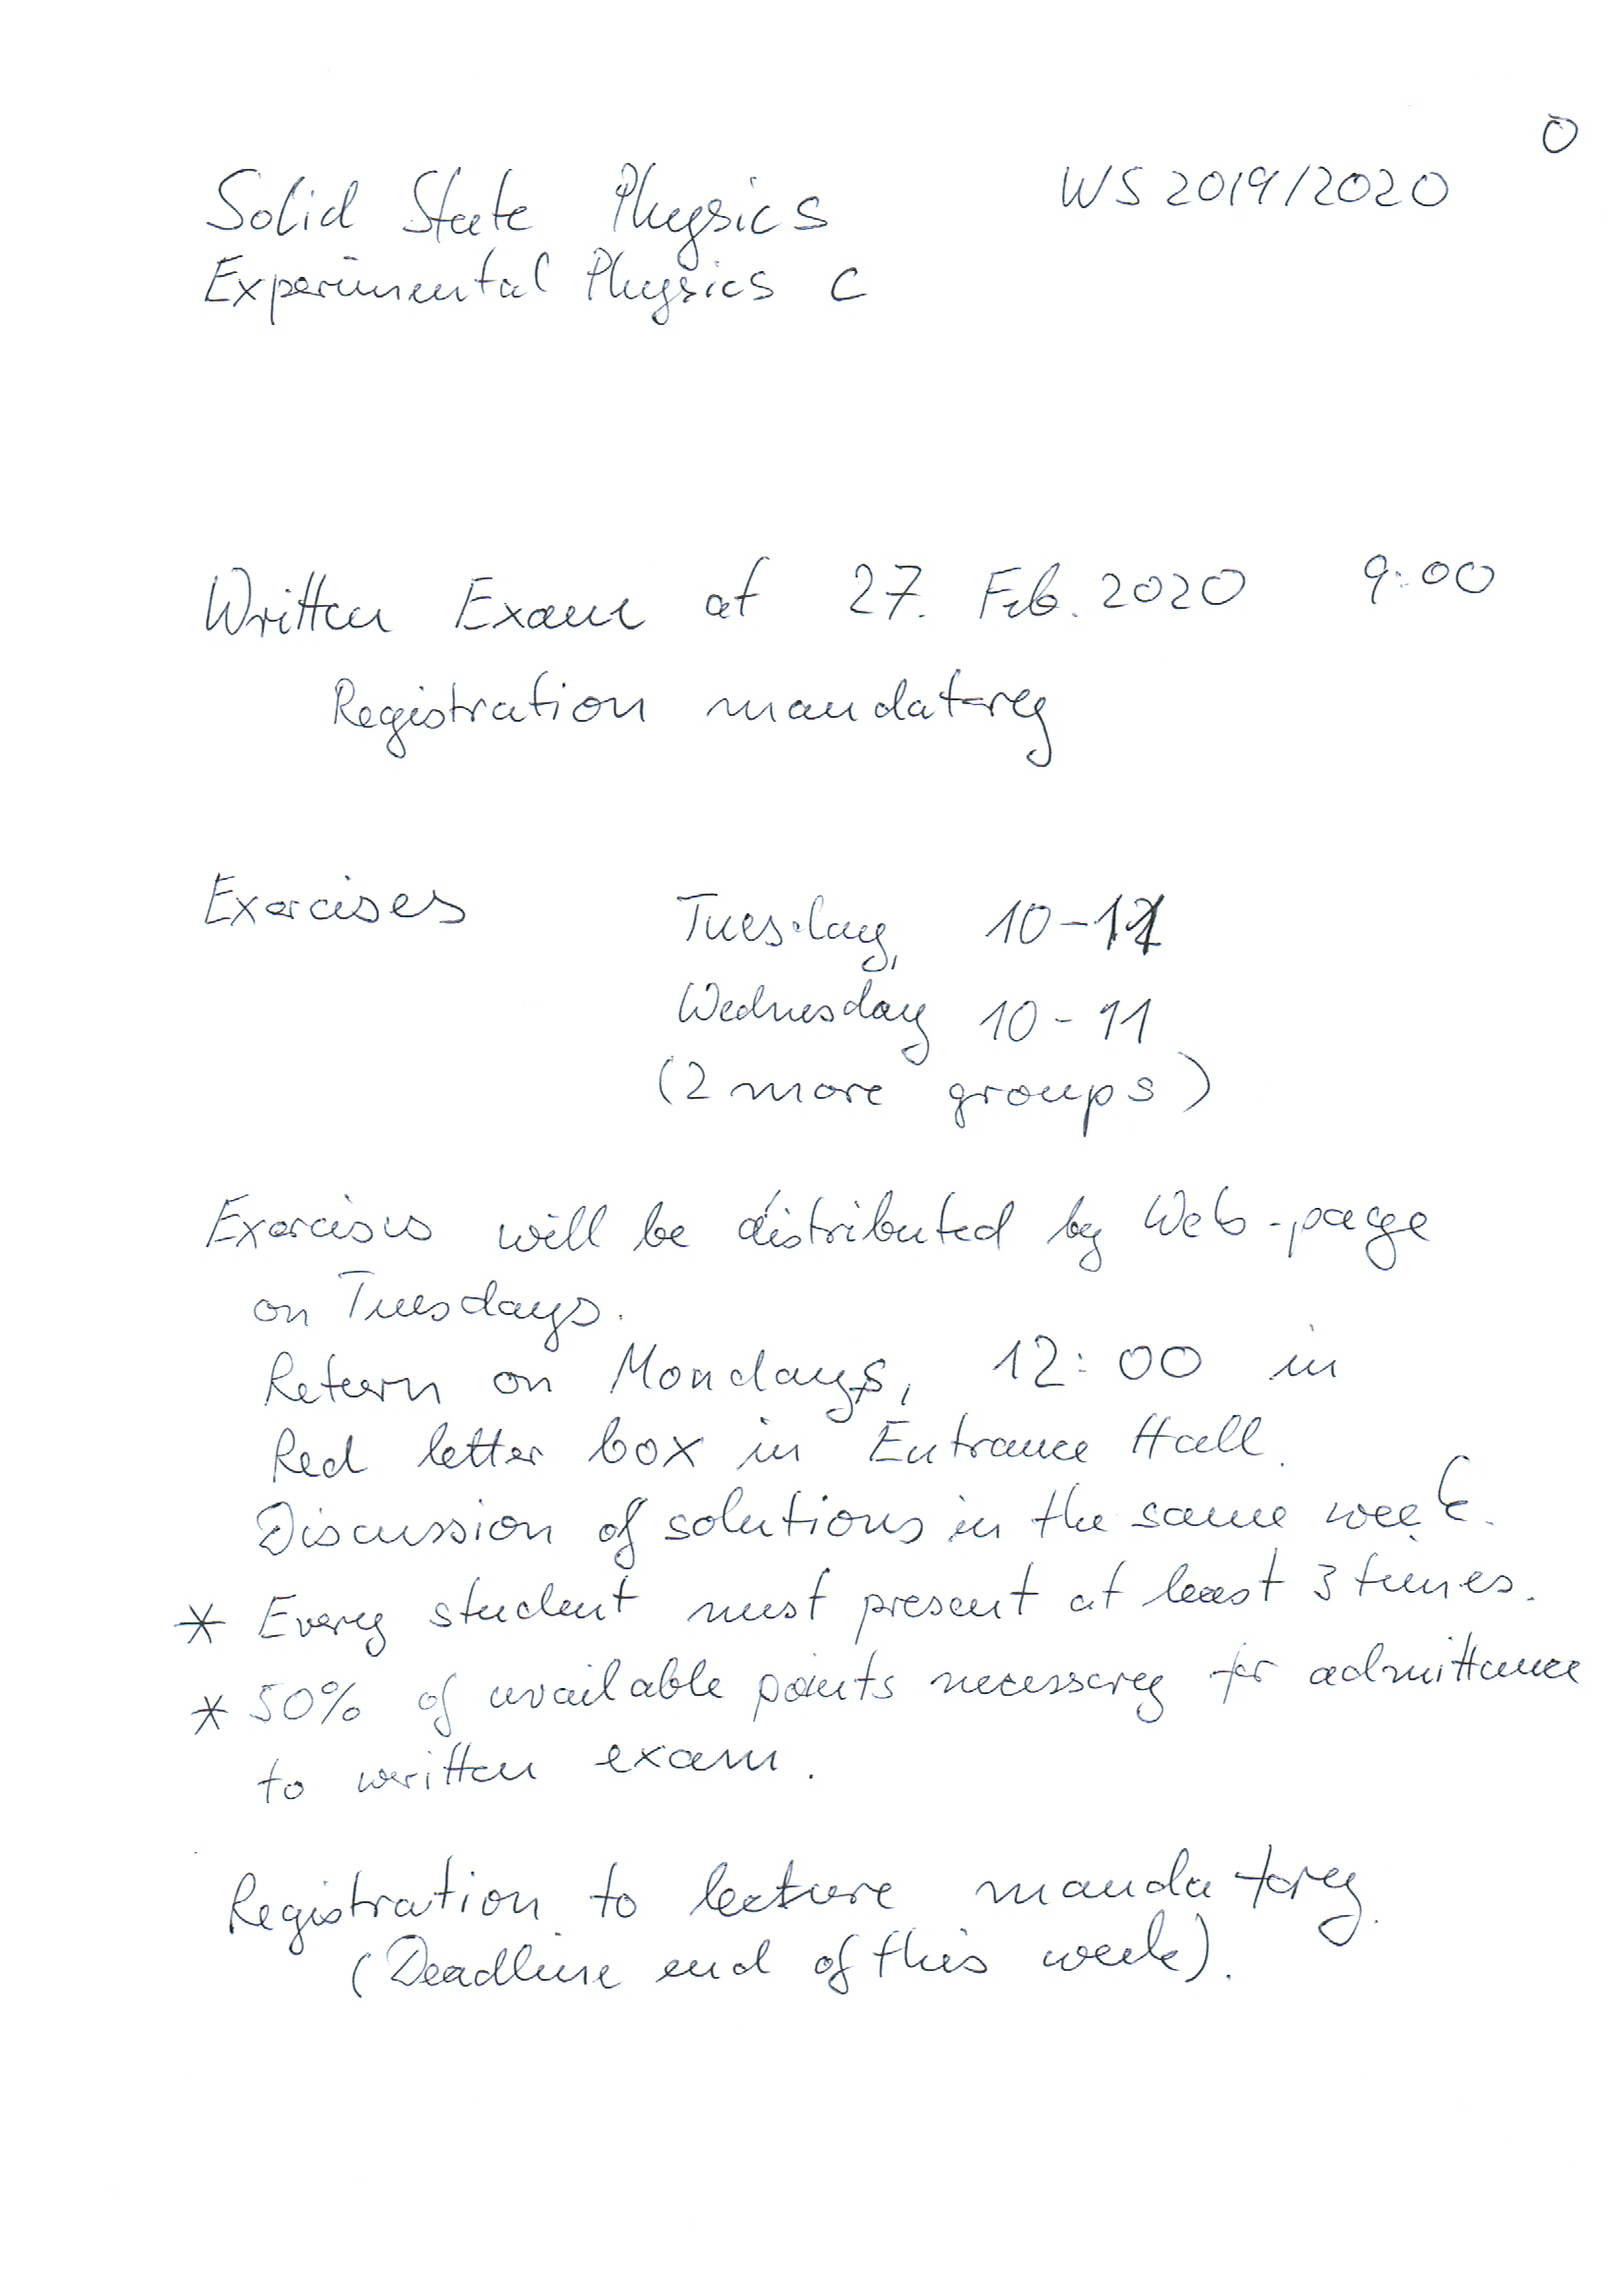 0
Solid State Physics WS 2019/2020
Experimental Physics C
Written Exam at 27. Feb. 2020 9:00
Registration mandatory
Exercises Tuesday, 10-11
Wednesday 10-11
(2 more groups)
Exercises will be distributed by Web-page
on Tuesdays.
Return on Mondays, 12:00 in
Red letter box in Entrance Hall.
Discussion of solutions in the same week.
* Every student must present at least 3 times.
* 50% of available points necessary for admittance
to written exam.
Registration to lecture mandatory.
(Deadline end of this week).